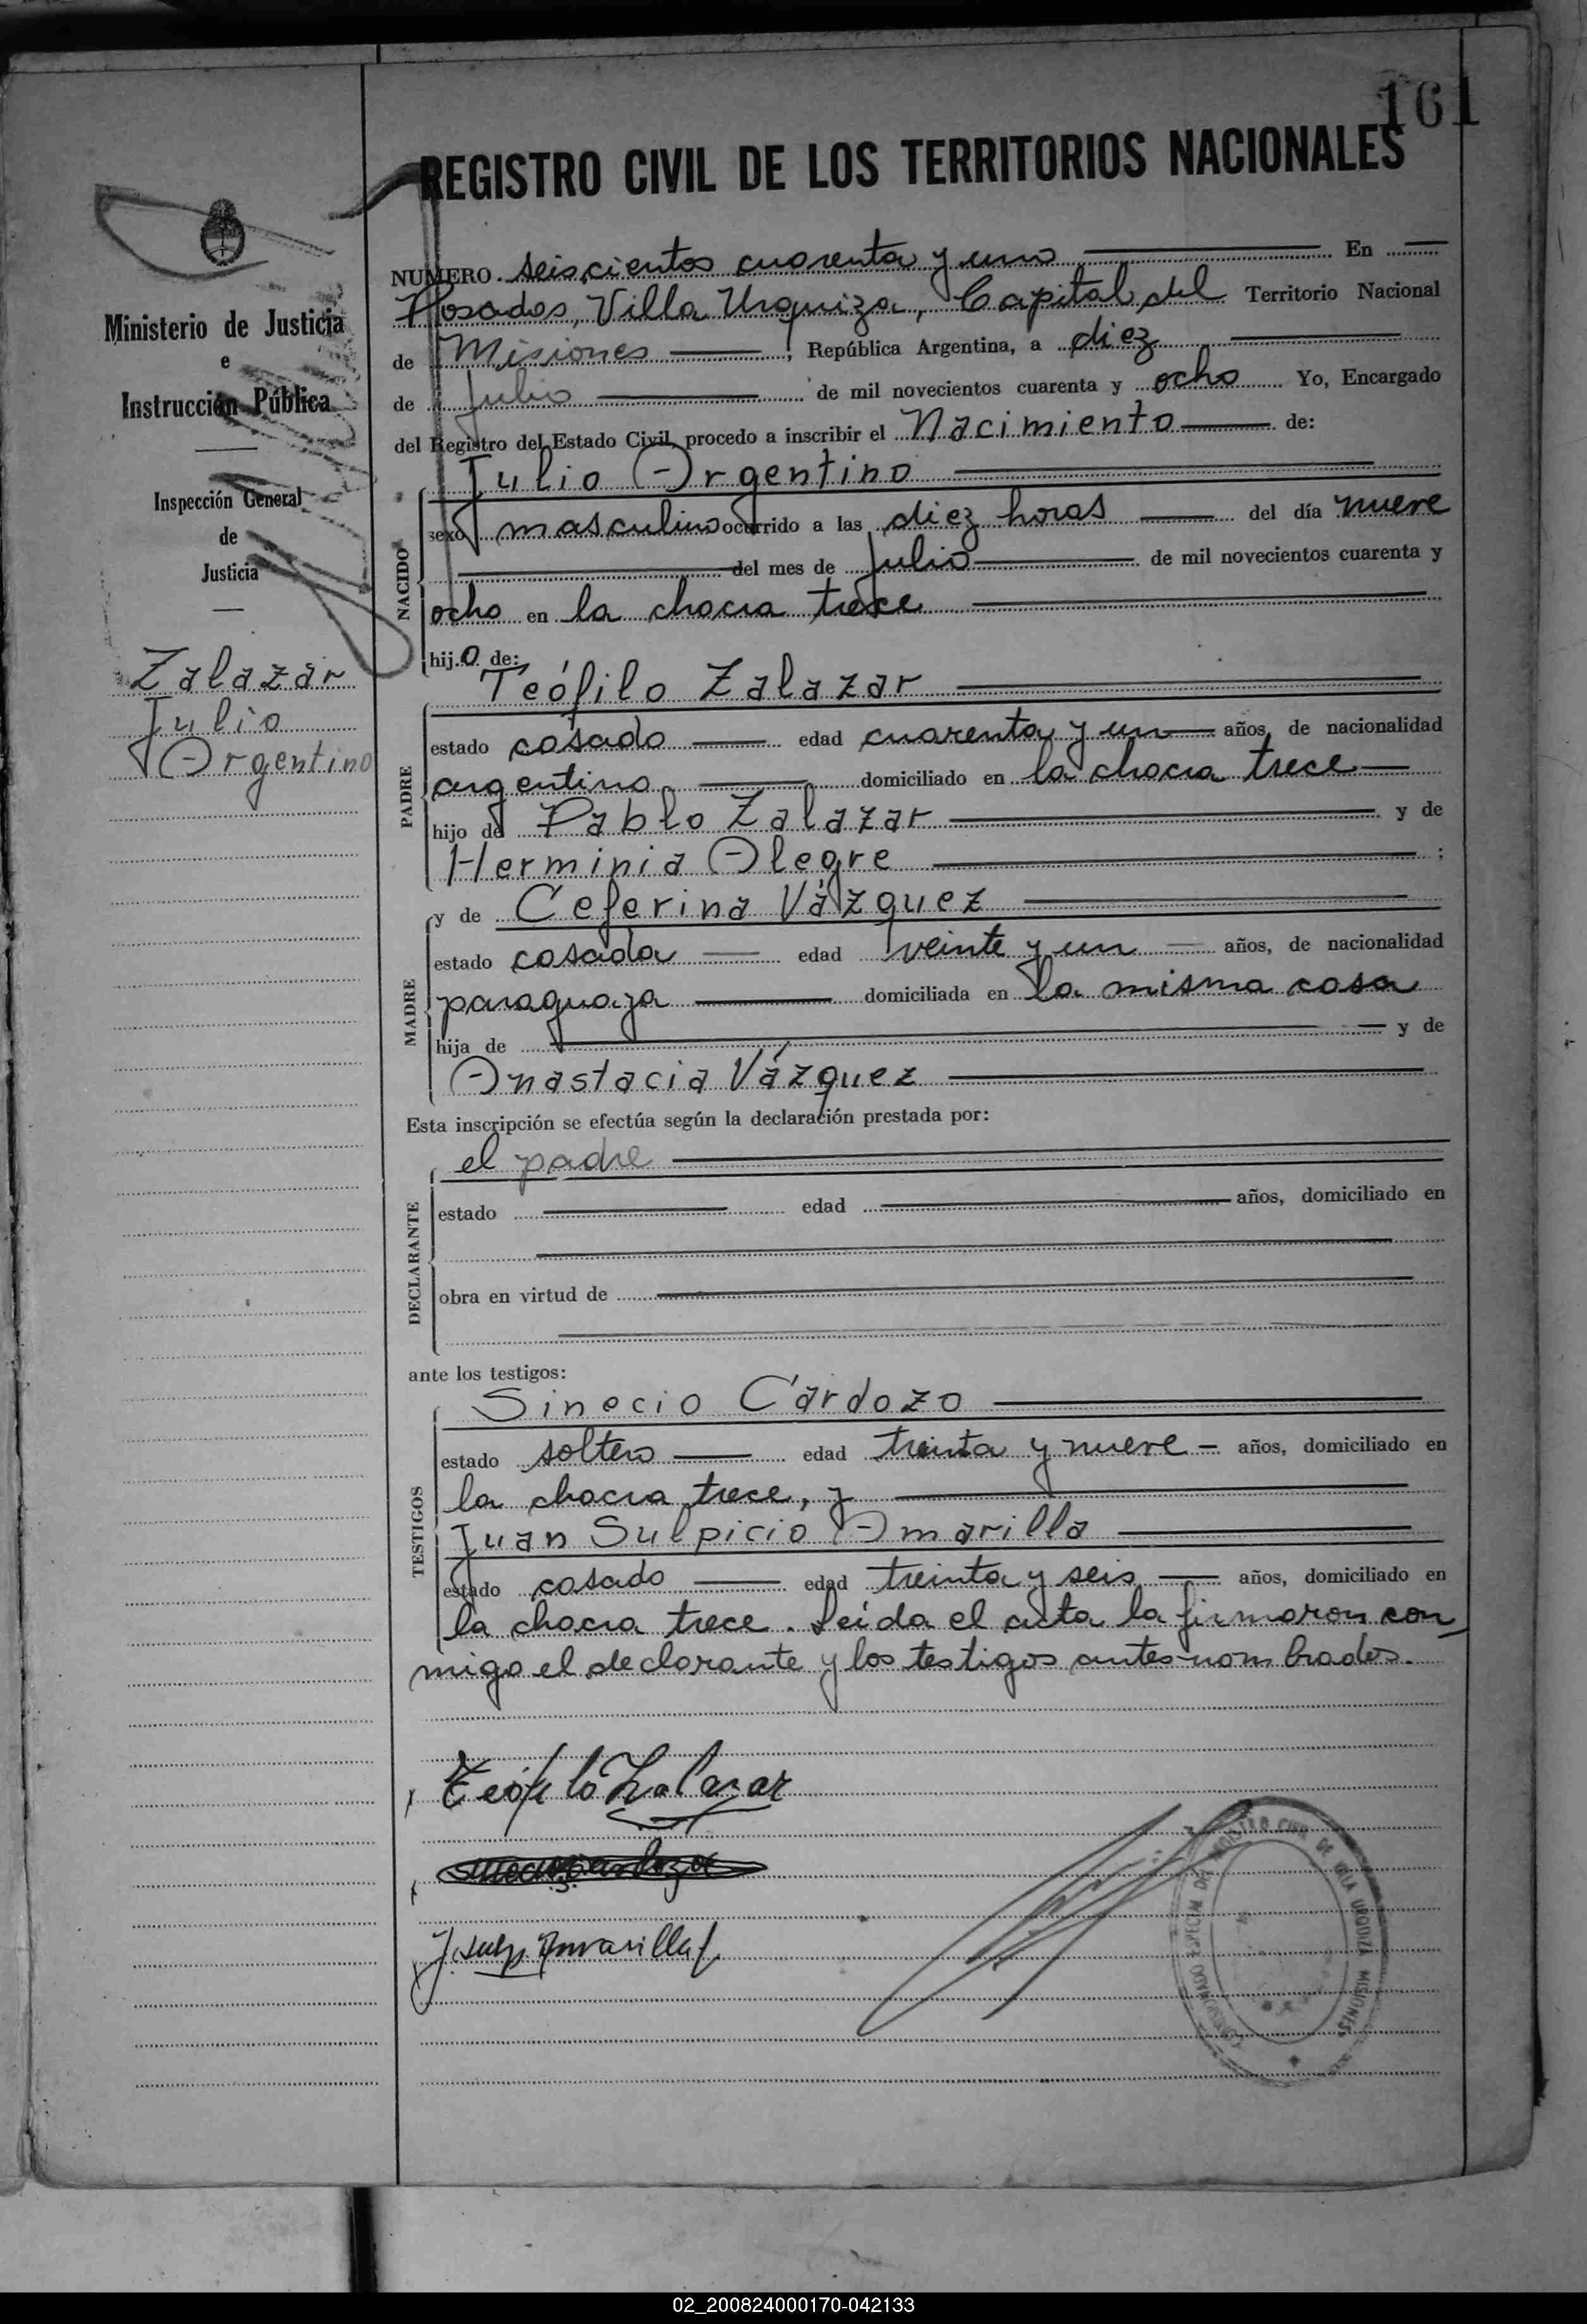 161
REGISTRO CIVIL DE LOS TERRITORIOS NACIONALES
Ministerio de Justicia
e
Instrucción Pública
Inspección General
de
Justicia
Zalazar
Julio
Argentino
NUMERO seiscientos cuarenta y uno En
Posadas, Villa Urquiza, Capital del Territorio Nacional
de Misiones, República Argentina, a diez
de Julio de mil novecientos cuarenta y ocho Yo, Encargado
del Registro del Estado Civil, procedo a inscribir el Nacimiento de:
Julio Argentino
NACIDO
sexo masculino ocurrido a las diez horas del día nueve
del mes de Julio de mil novecientos cuarenta y
ocho en la chacra trece
hijo de:
Teófilo Zalazar
PADRE
estado casado edad cuarenta y un años, de nacionalidad
argentino domiciliado en la chacra trece
hijo de Pablo Zalazar y de
Herminia Alegre ;
y de Ceferina Vázquez
MADRE
estado casada edad veinte y un años, de nacionalidad
paraguaya domiciliada en la misma casa
hija de y de
Anastacia Vázquez
Esta inscripción se efectúa según la declaración prestada por:
el padre
DECLARANTE
estado edad años, domiciliado en
obra en virtud de
ante los testigos:
Sinecio Cardozo
TESTIGOS
estado soltero edad treinta y nueve años, domiciliado en
la chacra trece, y
Juan Sulpicio Amarilla
estado casado edad treinta y seis años, domiciliado en
la chacra trece. Leída el acta la firmaron con
migo el declarante y los testigos antes nombrados.
Teófilo Zalazar
J. Sulp. Amarilla
REGISTRO CIVIL DE VILLA URQUIZA MISIONES
02_200824000170-042133